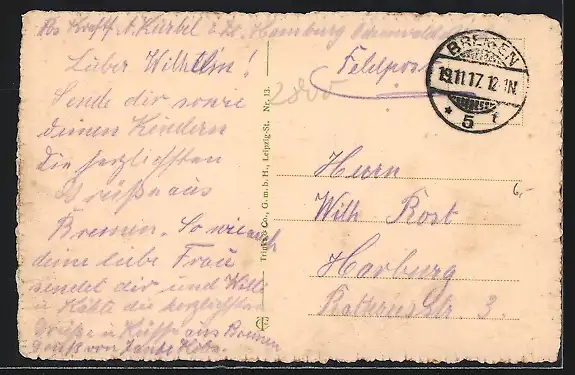 Hamburg
Lieber Wilhelm!
Sende dir sowie
deinen Kindern
die herzlichsten
Grüße aus
Bremen. So wie auch
deine liebe Frau
sendet dir und
die herzlichsten
Grüße u Küsse aus Bremen
Gruß von
Trinks & Co., G. m. b. H., Leipzig-St. Nr. 13.
Feldpost
BREMEN
19.11.17. 12-1N.
* 5 t
Herrn
Wilh Rost
Harburg
3.
6,-